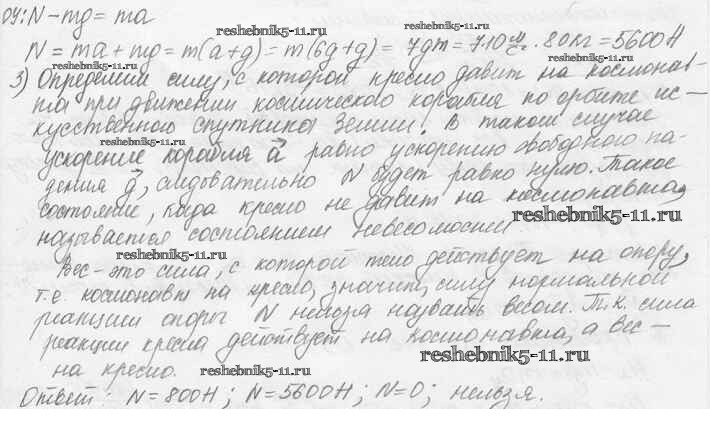 ОУ: N – mg = ma
reshebnik5-11.ru
reshebnik5-11.ru
N = ma + mg = m(a+g) = m(6g+g) = 7gm = 7·10 м/с² · 80 кг = 5600 Н
reshebnik5-11.ru
reshebnik5-11.ru
3) Определим силу, с которой кресло давит на космонав-
та при движении космического корабля по орбите ис-
кусственного спутника Земли. В таком случае
reshebnik5-11.ru
ускорение корабля a⃗ равно ускорению свободного па-
дения g⃗, следовательно N будет равно нулю. Такое
состояние, когда кресло не давит на космонавта,
reshebnik5-11.ru
называется состоянием невесомости
reshebnik5-11.ru
Вес – это сила, с которой тело действует на опору,
т.е. космонавт на кресло, значит, силу нормальной
реакции опоры N нельзя назвать весом. Т.к. сила
реакции кресла действует на космонавта, а вес –
reshebnik5-11.ru
на кресло.
reshebnik5-11.ru
Ответ: N = 800 Н; N = 5600 Н; N = 0; нельзя.